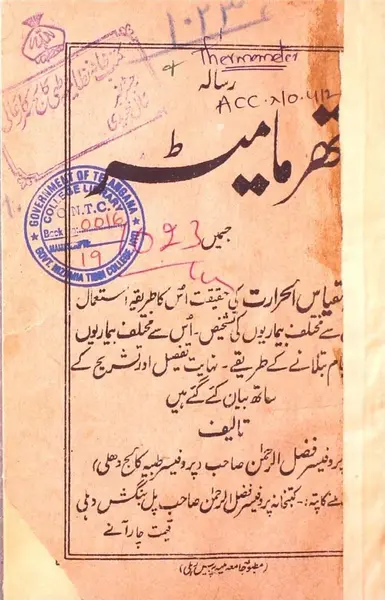 ۱۰۲۳
Thermometer
رسالہ
Acc. No. 412
تھرمامیٹر
GOVERNMENT OF TELANGANA
COLLEGE LIBRARY
G.N.T.C.
Book 0016
19
GOVT. NIZAMIA TIBBI COLLEGE, HYD.
1023
جمیں
مقیاس الحرارت کی حقیقت اُس کا طریقۂ استعمال
سے مختلف بیماریوں کی تشخیص - اُس سے مختلف بیماریوں
بتلانے کے طریقے - نہایت تفصیل اور تشریح کے
ساتھ بیان کئے گئے ہیں
تالیف
پروفیسر فضل الرحمٰن صاحب (پروفیسر طبیہ کالج دھلی)
ملنے کا پتہ :- کتبخانہ پروفیسر فضل الرحمٰن صاحب پل بنگش دہلی
قیمت چار آنے
(مطبوعہ جامعہ پریس دہلی)